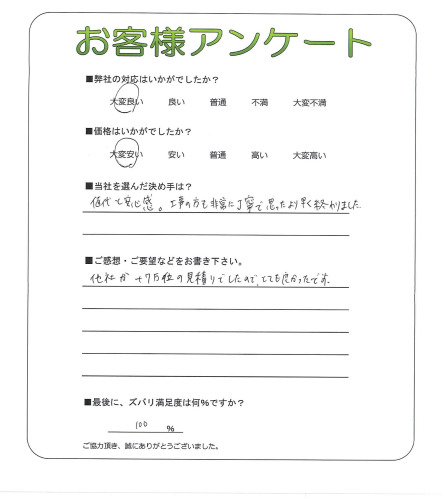 お客様アンケート
■弊社の対応はいかがでしたか？
大変良い 良い 普通 不満 大変不満
■価格はいかがでしたか？
大変安い 安い 普通 高い 大変高い
■当社を選んだ決め手は？
値段と安心感。工事の方も非常に丁寧で思ったより早く終わりました
■ご感想・ご要望などをお書き下さい。
他社が+7万位の見積りでしたので、とても良かったです。
■最後に、ズバリ満足度は何％ですか？
100 ％
ご協力頂き、誠にありがとうございました。